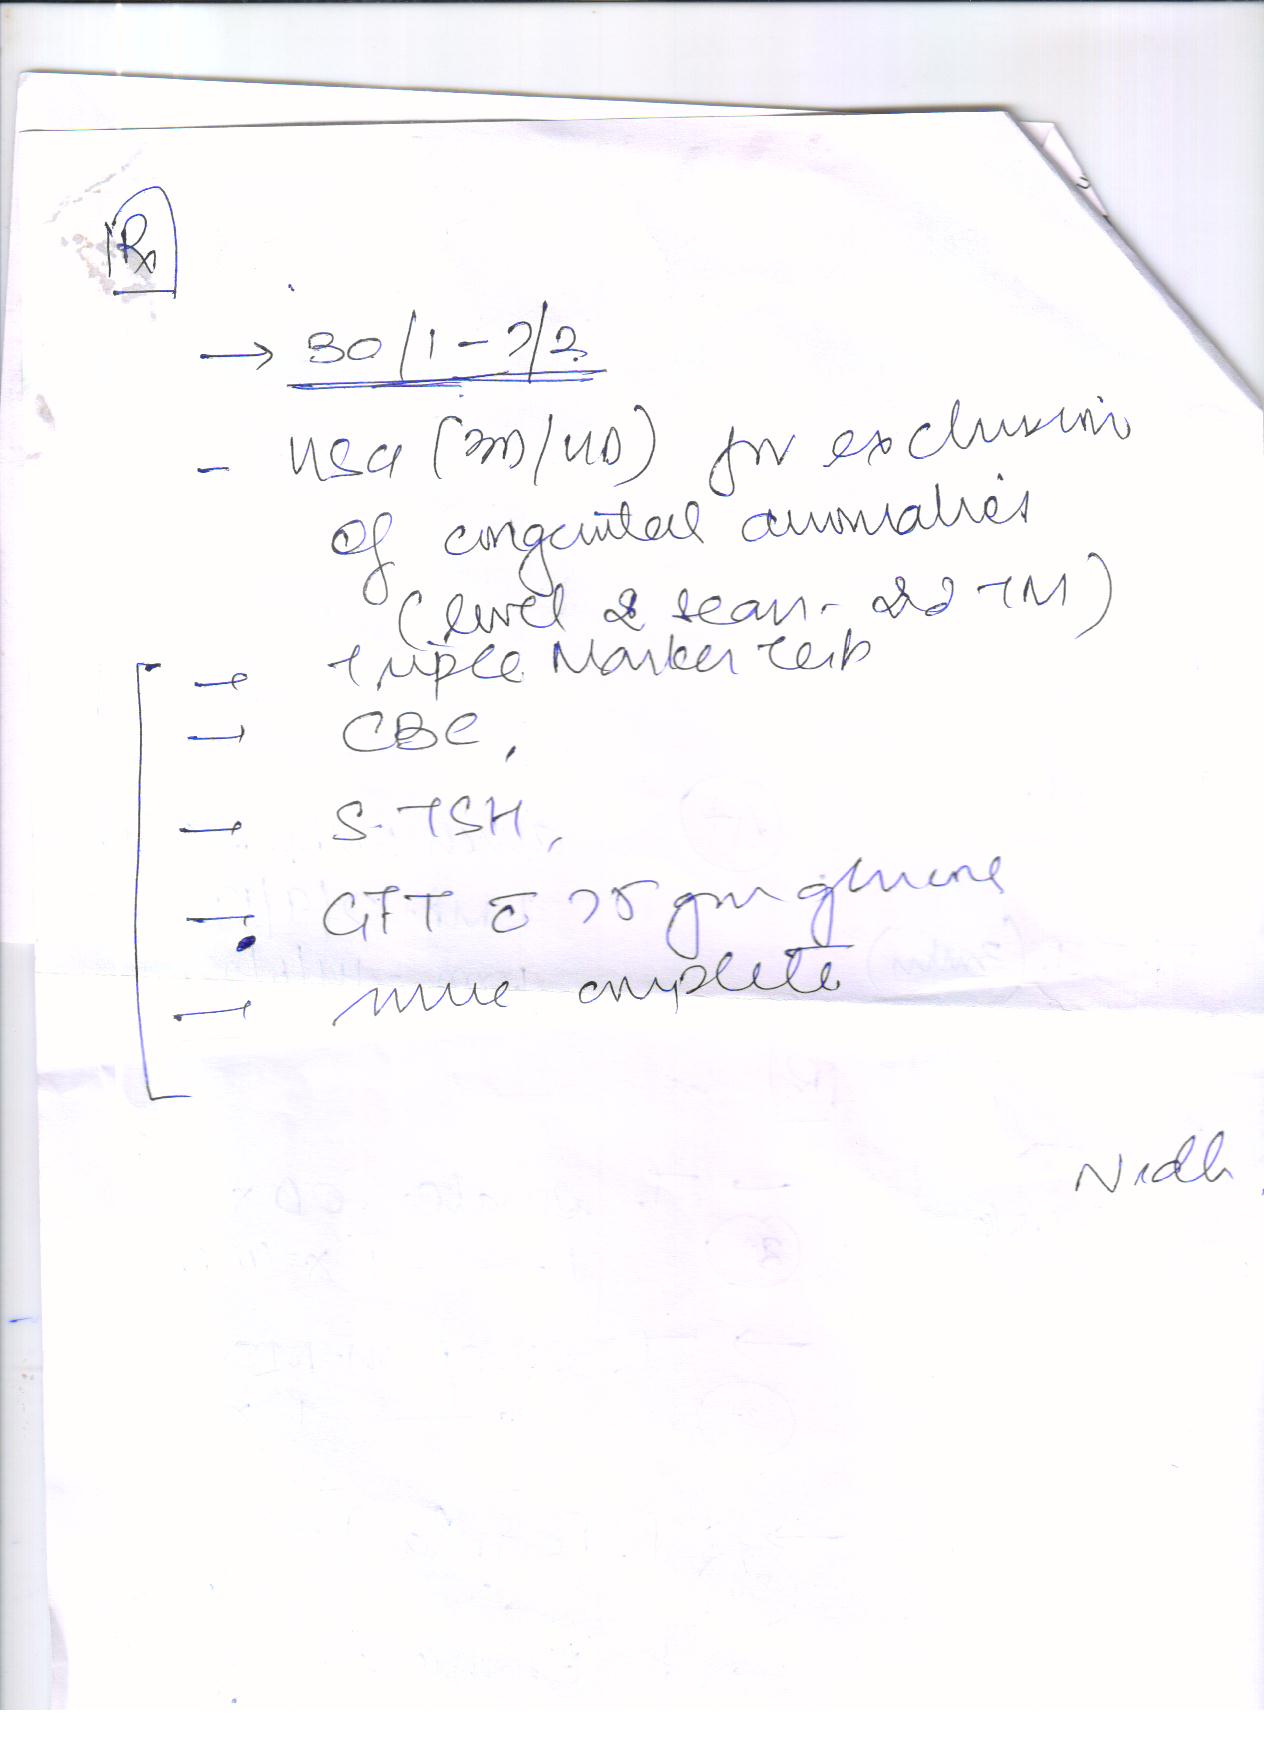 Rx
→ 30/1 - 7/2
- USG (3D/4D) for exclusion
of congenital anomalies
(level 2 scan - TM)
→ triple Marker test
→ CBC,
→ S. TSH,
→ GTT c̄ 75 gm glucose
→ urine complete
Nidh